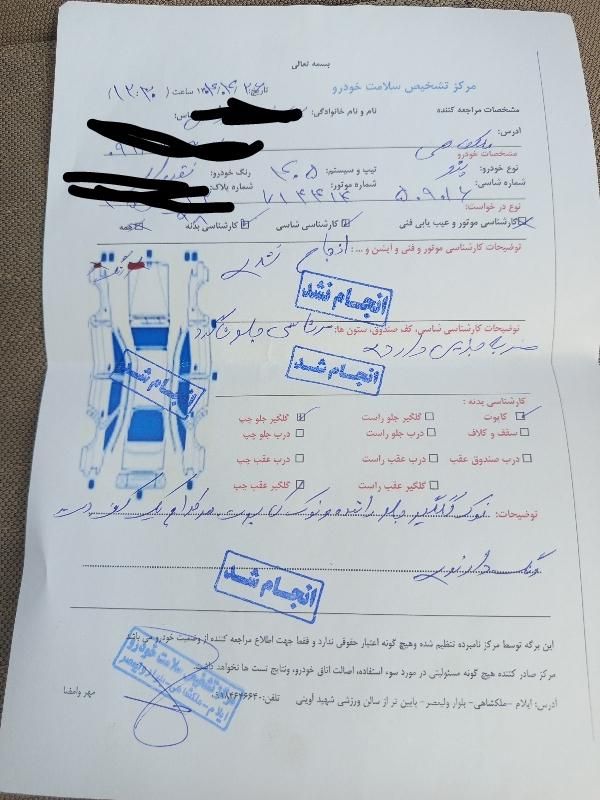 بسمه تعالی
مرکز تشخیص سلامت خودرو
تاریخ: ساعت (۱۲:۳۰)
مشخصات مراجعه کننده نام و نام خانوادگی:
آدرس: ملکشاهی
مشخصات خودرو
نوع خودرو: پژو تیپ و سیستم: ۴۰۵ رنگ خودرو:
شماره شاسی: شماره موتور: شماره پلاک:
نوع در خواست:
کارشناسی موتور و عیب یابی فنی کارشناسی شاسی کارشناسی بدنه همه
توضیحات کارشناسی موتور و فنی و آپشن و ... : انجام نشد
انجام نشد
توضیحات کارشناسی شاسی، کف صندوق، ستون ها: سرشاسی جلو شاگرد
ضربه جزئی دارد
انجام شد
انجام شد
کارشناسی بدنه :
کاپوت گلگیر جلو راست گلگیر جلو چپ
سقف و کلاف درب جلو راست درب جلو چپ
درب صندوق عقب درب عقب راست درب عقب چپ
گلگیر عقب راست گلگیر عقب چپ
توضیحات: نوک گلگیر جلو راننده و نوک کاپوت هر کدام یک
رنگ دارند
انجام شد
این برگه توسط مرکز نامبرده تنظیم شده وهیچ گونه اعتبار حقوقی ندارد و فقط جهت اطلاع مراجعه کننده از وضعیت خودرو می باشد
مرکز صادر کننده هیچ گونه مسئولیتی در مورد سوء استفاده، اصالت اتاق خودرو، ونتایج تست ها نخواهد داشت.
آدرس: ایلام -ملکشاهی- بلوار ولیعصر- پایین تر از سالن ورزشی شهید آوینی تلفن: ۰۹۱۸۴۶۴۶۶۴۰ مهر وامضا
مرکز تشخیص سلامت خودرو
ایلام-ملکشاهی-بلوار ولیعصر